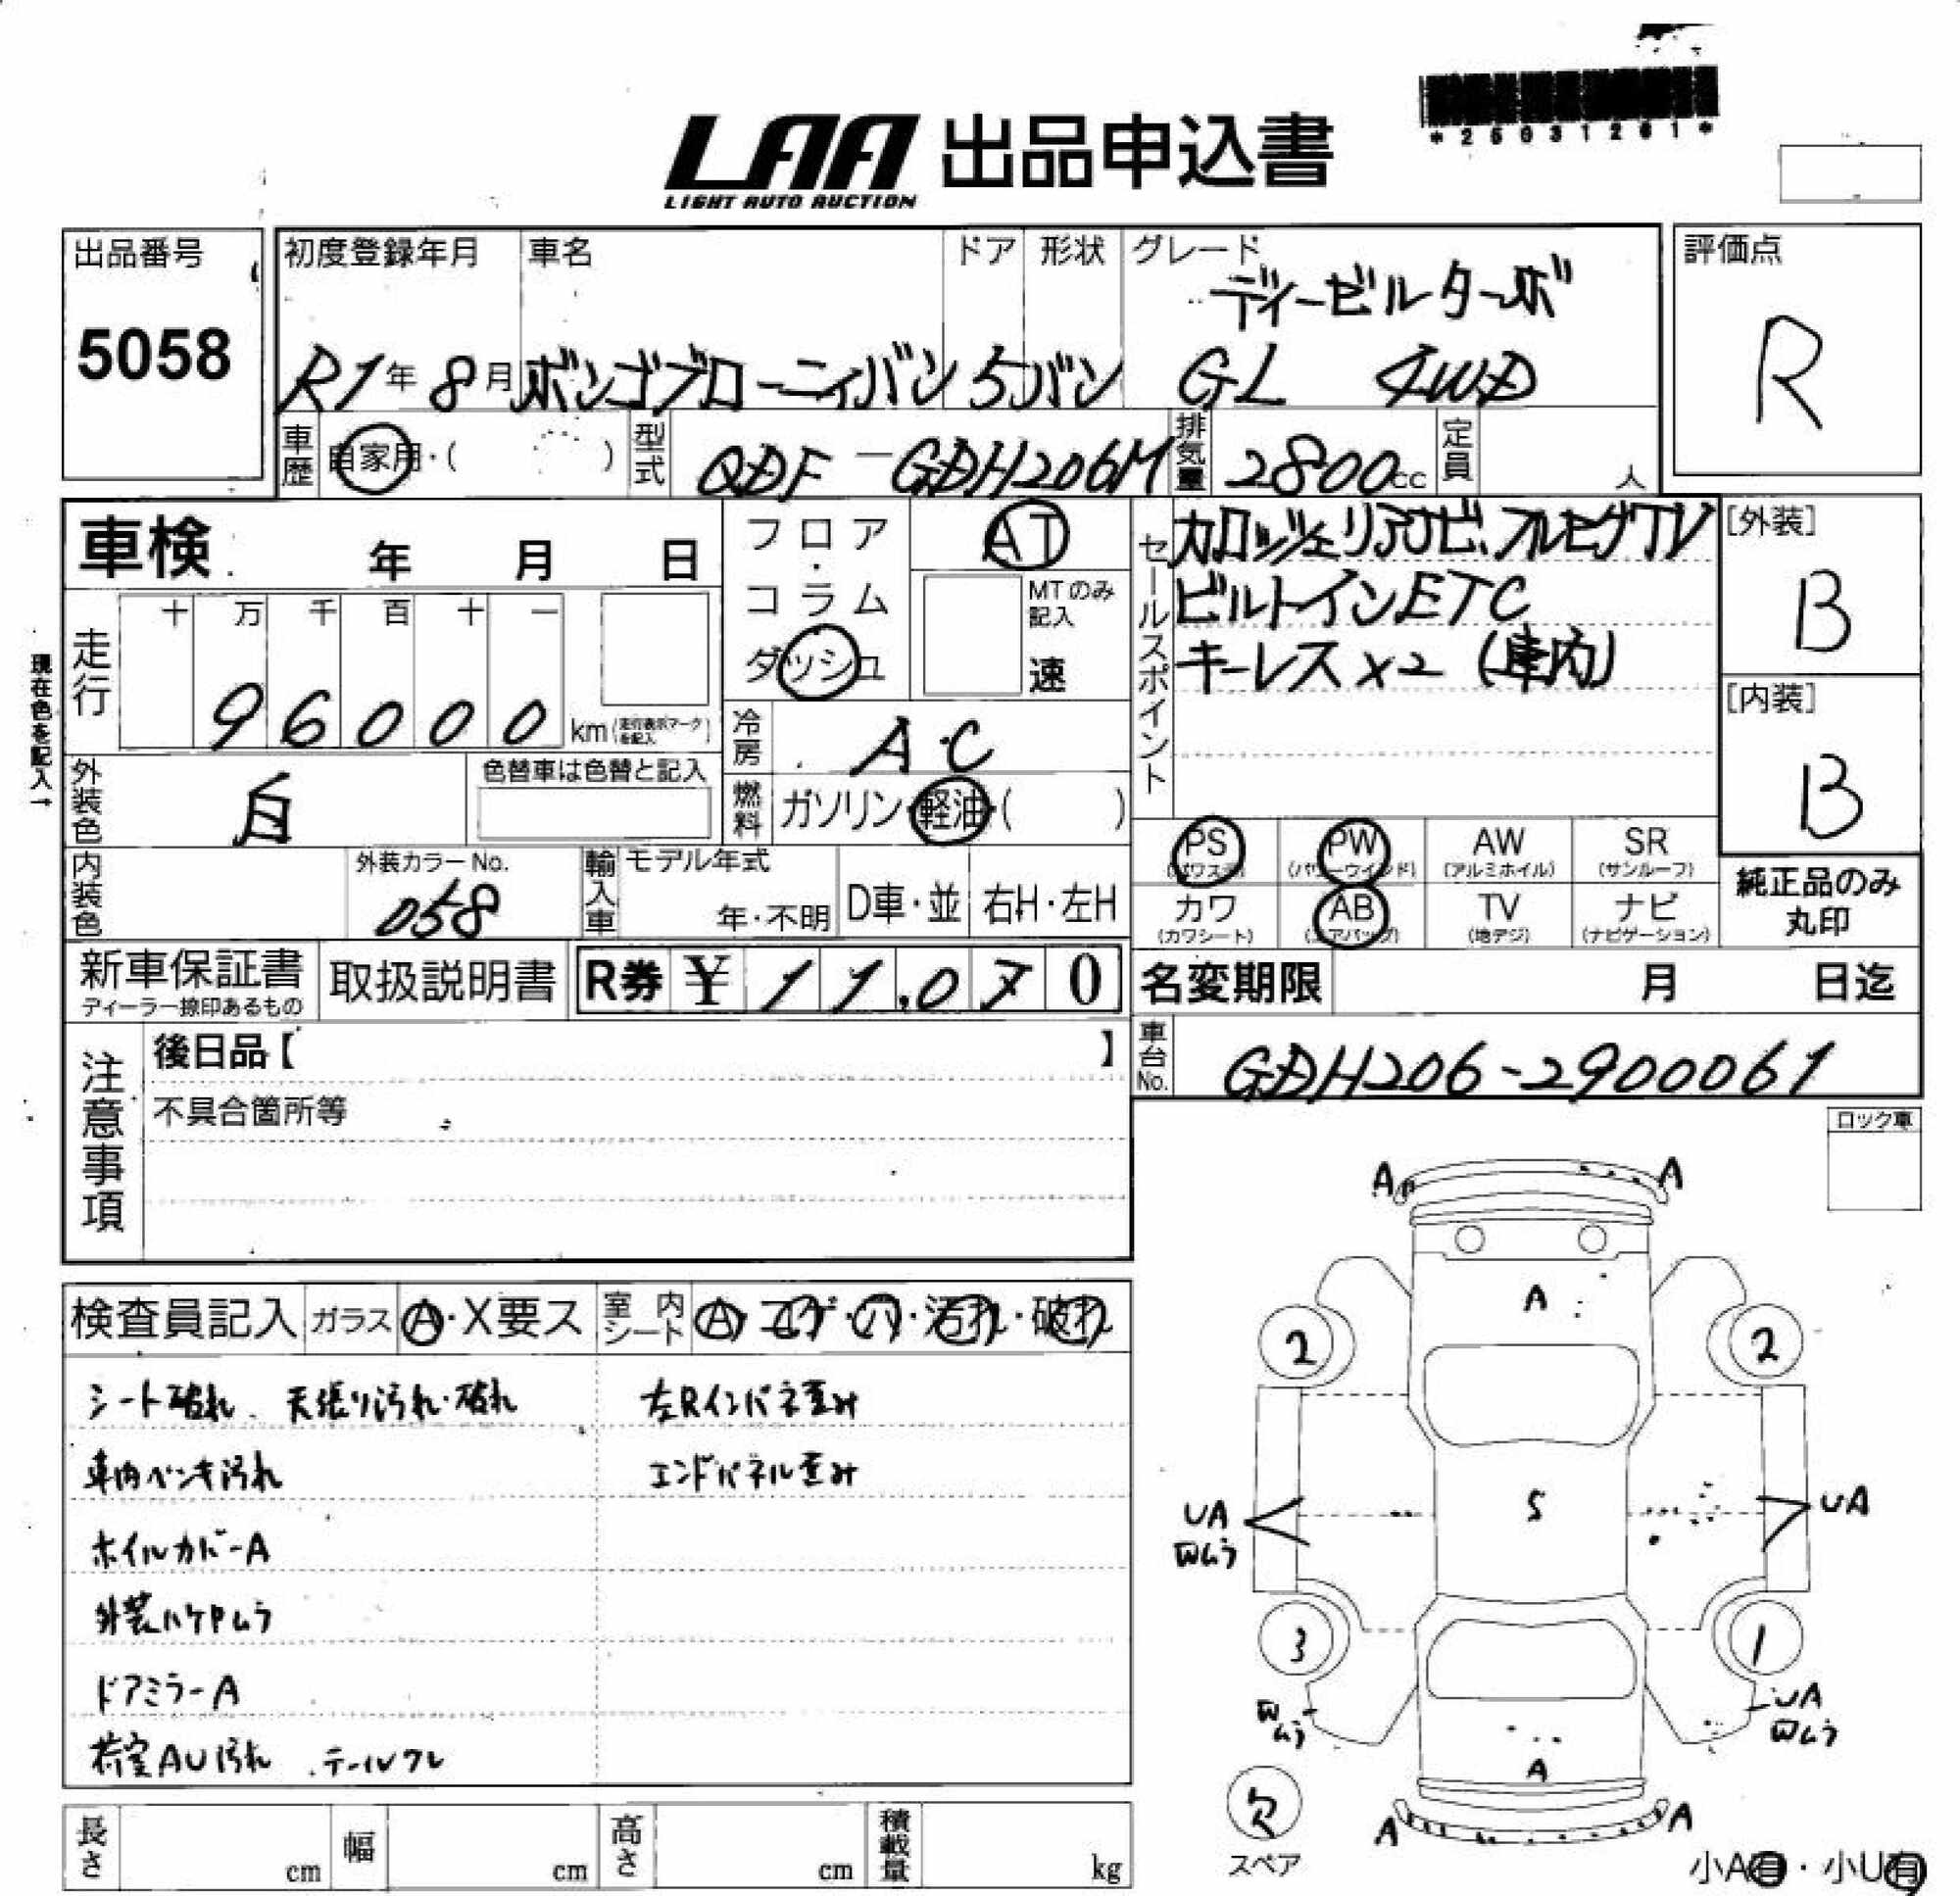 *25031261*
LAA 出品申込書
LIGHT AUTO AUCTION
出品番号
5058
初度登録年月
R1年8月
車名
ボンゴブローニィバン
ドア
5
形状
バン
グレード
ディーゼルターボ
GL 4WD
評価点
R
車歴
自家用・( )
型式
QDF-GDH206M
排気量
2800cc
定員
人
車検 年 月 日
走行
十 万 千 百 十 一
96000
km(走行表示マークを記入)
現在色を記入→
フロア・
コラム
ダッシュ
AT
MTのみ記入
速
セールスポイント
カロッツェリアナビ、フルセグTV
ビルトインETC
キーレス×2 (車内)
[外装]
B
[内装]
B
冷房
A・C
外装色
白
色替車は色替と記入
燃料
ガソリン・軽油・( )
PS
(パワステ)
PW
(パワーウインド)
AW
(アルミホイル)
SR
(サンルーフ)
カワ
(カワシート)
AB
(エアバッグ)
TV
(地デジ)
ナビ
(ナビゲーション)
純正品のみ
丸印
内装色
外装カラーNo.
058
輸入車
モデル年式
年・不明
D車・並
右H・左H
新車保証書
ディーラー捺印あるもの
取扱説明書
R券 ¥11,070
名変期限 月 日迄
車台No.
GDH206-2900061
注意事項
後日品【 】
不具合箇所等
ロック車
検査員記入
ガラス
A・X要ス
室内シート
A・コゲ・穴・汚れ・破れ
シート破れ、天張り汚れ・破れ
車内ペンキ汚れ
ホイルカバーA
外装ハケ凹ムラ
ドアミラーA
荷室AU汚れ .テールワレ
左Rインパネ歪み
エンドパネル歪み
A A
A
2 2
UA
凹ムラ
S
UA
3 1
凹ムラ
UA
凹ムラ
A
A A
欠
スペア
小A有・小U有
長さ cm
幅 cm
高さ cm
積載量 kg